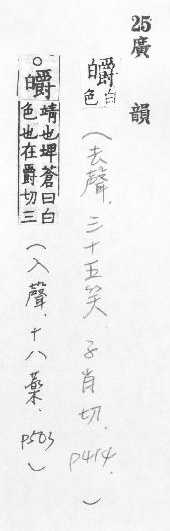 25廣韻
皭白色(去聲.三十五笑 子肖切.p414.)
○皭靖也埤蒼曰白色也在爵切三(入聲.十八藥.p503)